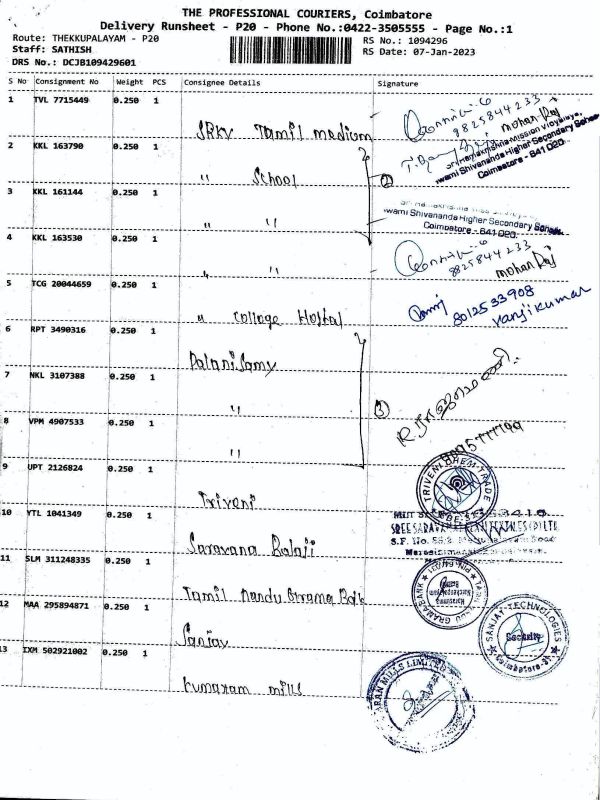 THE PROFESSIONAL COURIERS, Coimbatore
Delivery Runsheet - P20 - Phone No.:0422-3505555 - Page No.:1
Route: THEKKUPALAYAM - P20
RS No.: 1094296
Staff: SATHISH
RS Date: 07-Jan-2023
DRS No.: DCJB109429601
S No Consignment No Weight PCS Consignee Details Signature
1 TVL 7715449 0.250 1
SRKV Tamil medium
9825844233
mohan Raj
2 KKL 163790 0.250 1
" School
Sri Ramakrishna Mission Vidyalaya,
Swami Shivananda Higher Secondary School
Coimbatore - 641 020.
3 KKL 161144 0.250 1
" "
Swami Shivananda Higher Secondary School
Coimbatore - 641 020.
4 KKL 163530 0.250 1
" "
9825844233
mohan Raj
5 TCG 20044659 0.250 1
" College Hostal
8012533908
Ranjikumar
6 RPT 3490316 0.250 1
Palanisamy
7 NKL 3107388 0.250 1
"
3
8 VPM 4907533 0.250 1
"
9 UPT 2126824 0.250 1
Triveni
TRIVENI CHEM-TRADE
10 YTL 1041349 0.250 1
Saravana Balaji
S.F. No.
11 SLM 311248335 0.250 1
Tamil nandu Grama Bank
12 MAA 295894871 0.250 1
Sanjay
SANJAY TECHNOLOGIES
Security
Coimbatore
13 IXM 502921002 0.250 1
Kumaram mills
MILLS LIMITED